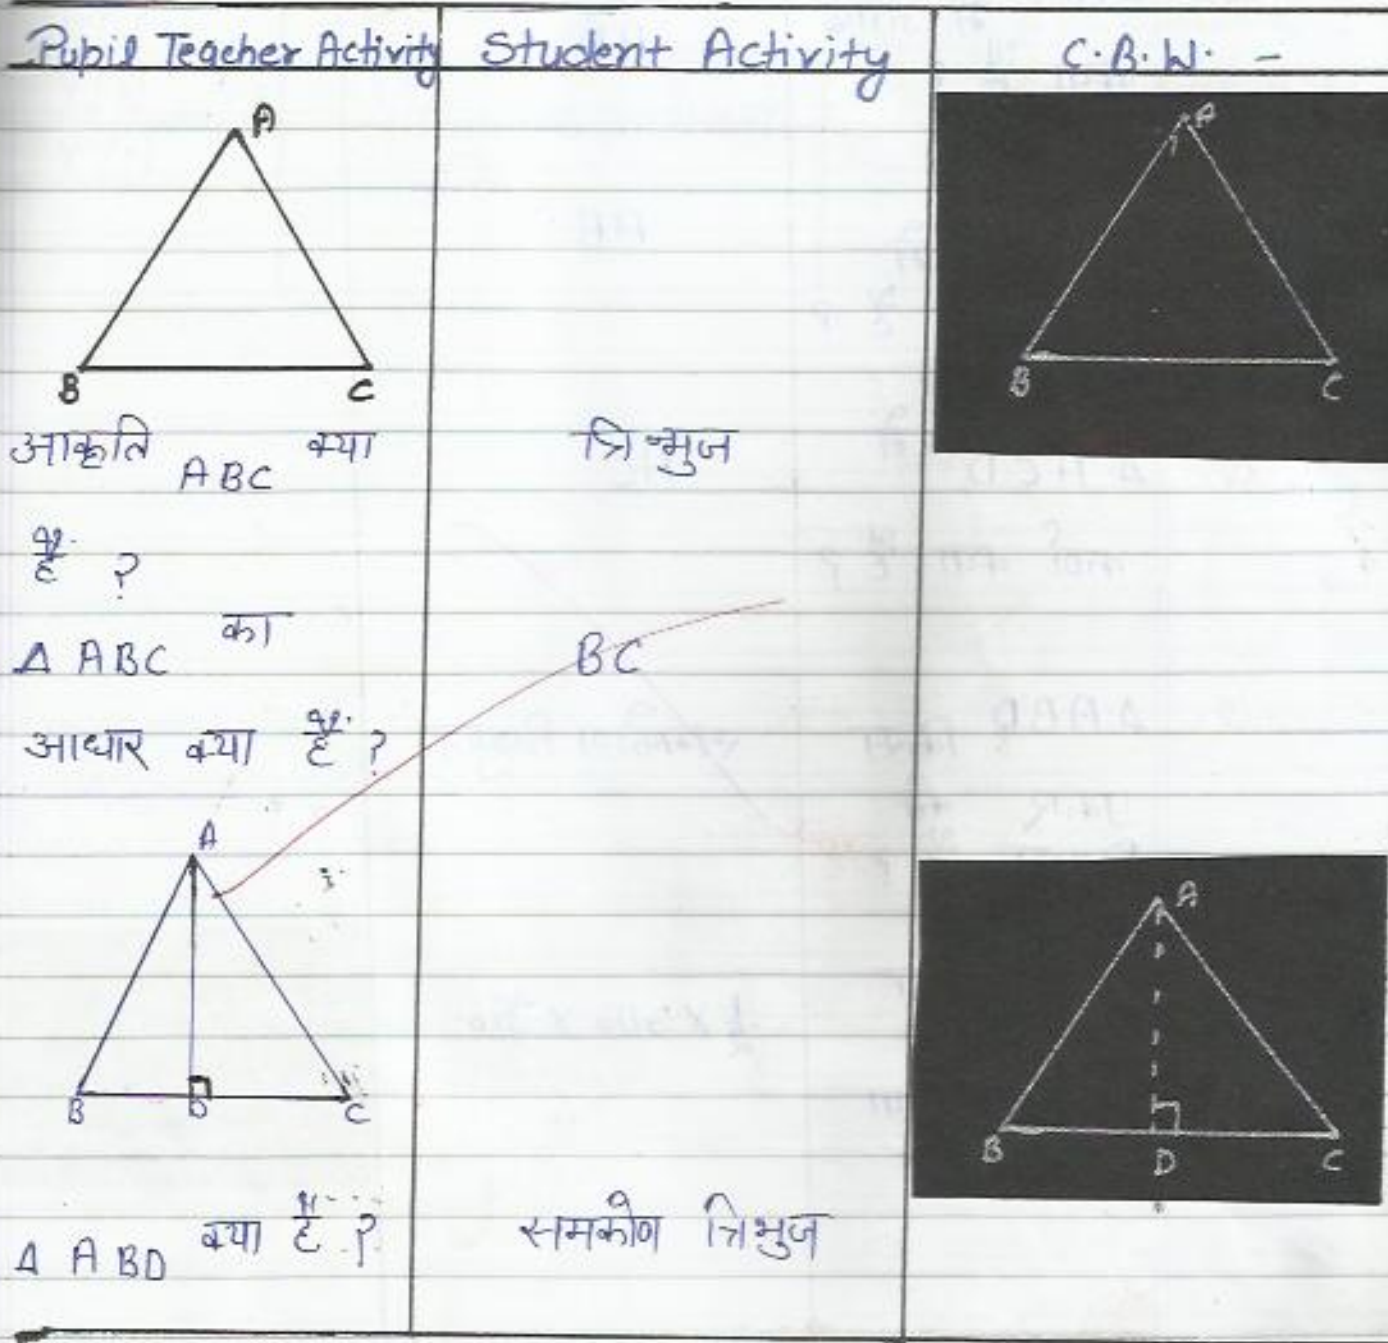 Pupil Teacher Activity Student Activity C.B.W. -
A
B C
A
B C
आकृति ABC क्या
है ?
त्रिभुज
Δ ABC का
आधार क्या है ?
BC
A
B D C
A
B D C
Δ ABD क्या है ?
समकोण त्रिभुज